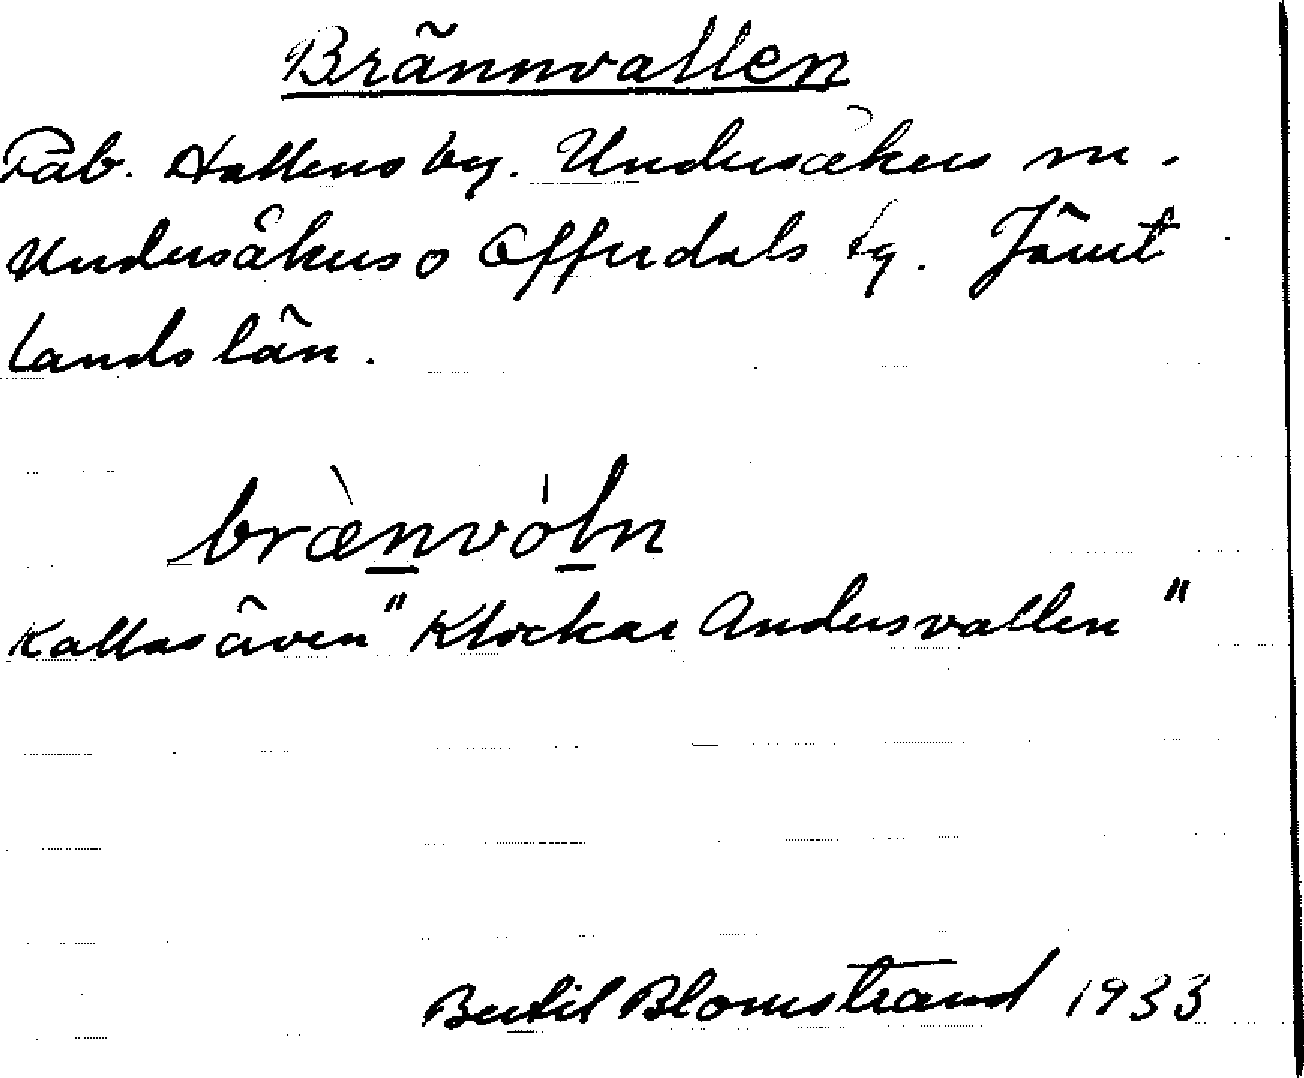 Brännvallen
Fäb. Hallens by. Undersåkers sn.
Undersåkers o Offerdals tg. Jämt
lands län.
brænvòln
Kallas även "Klockar Andersvallen"
Bertil Blomstrand 1933